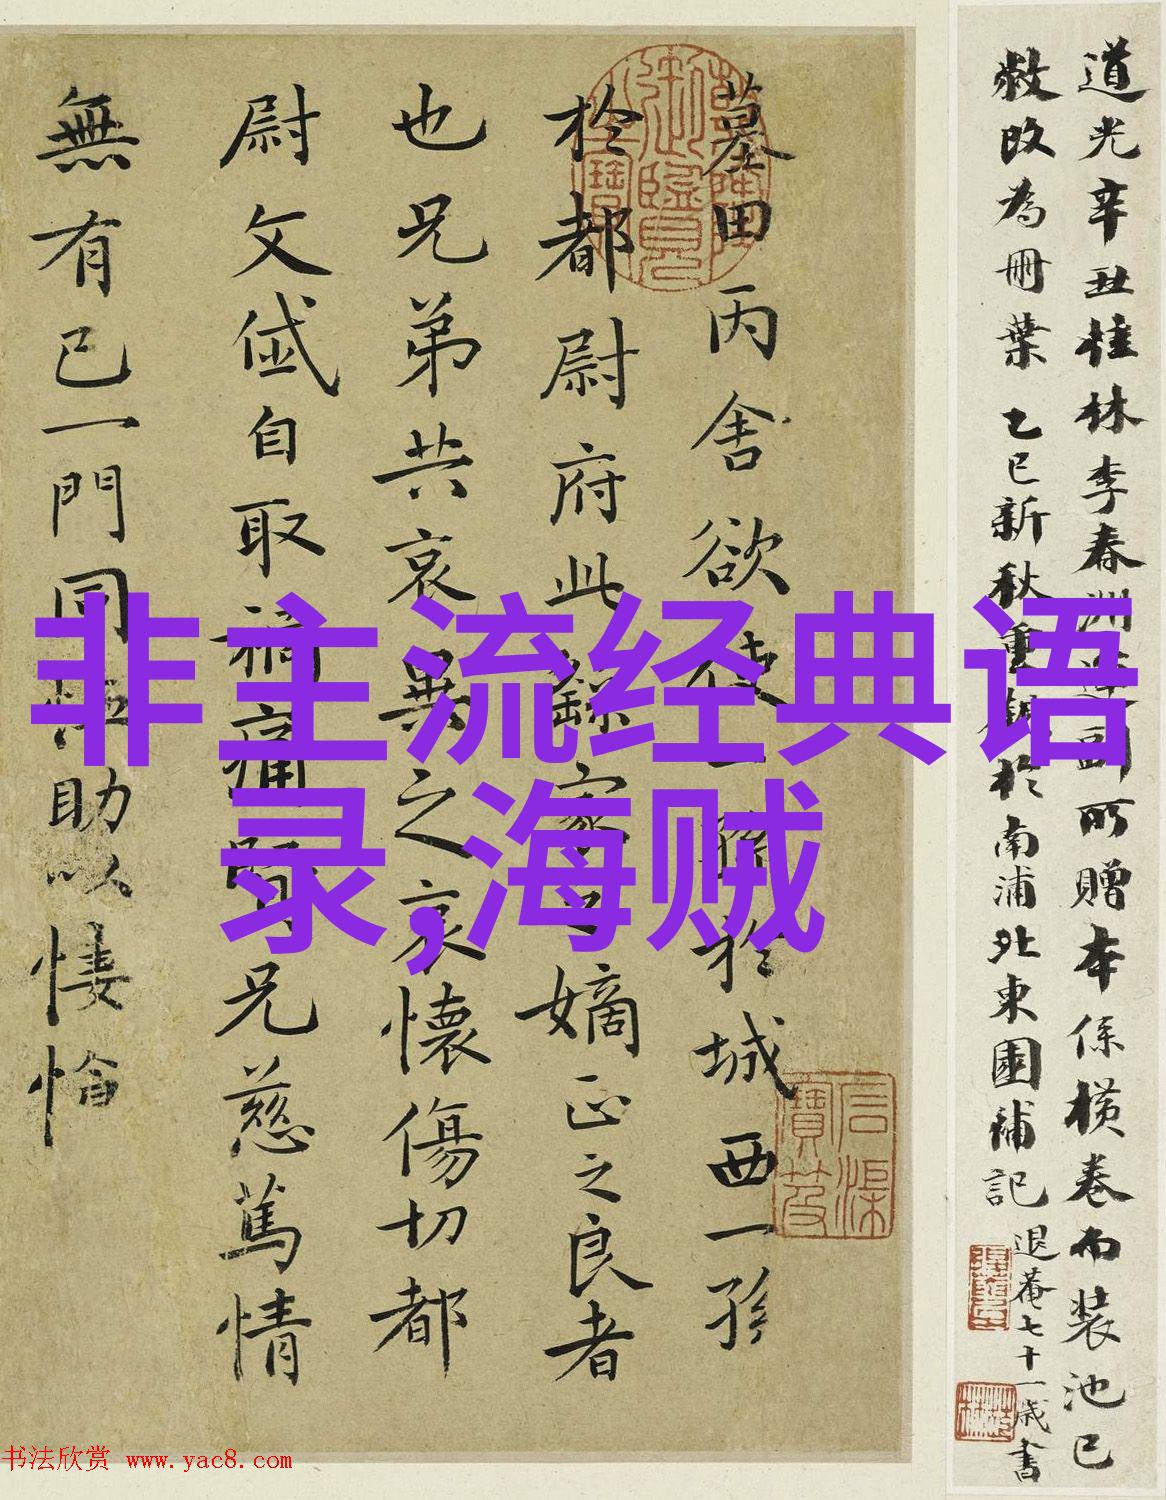 道光辛丑桂林李春洲
所贈本係橫卷而裝池已
敝改為冊葉乙巳新秋重
於南浦北東園補記
退菴七十一歲書
墓田丙舍欲使一孫於城西一孫
於都尉府此繇家之嫡正之良者
也兄弟共哀異之哀懷傷切都
尉文岱自取禍痛賢兄慈篤情
無有已一門同恤助以悽愴
非主流经典语
录,海贼
书法欣赏 www.yac8.com